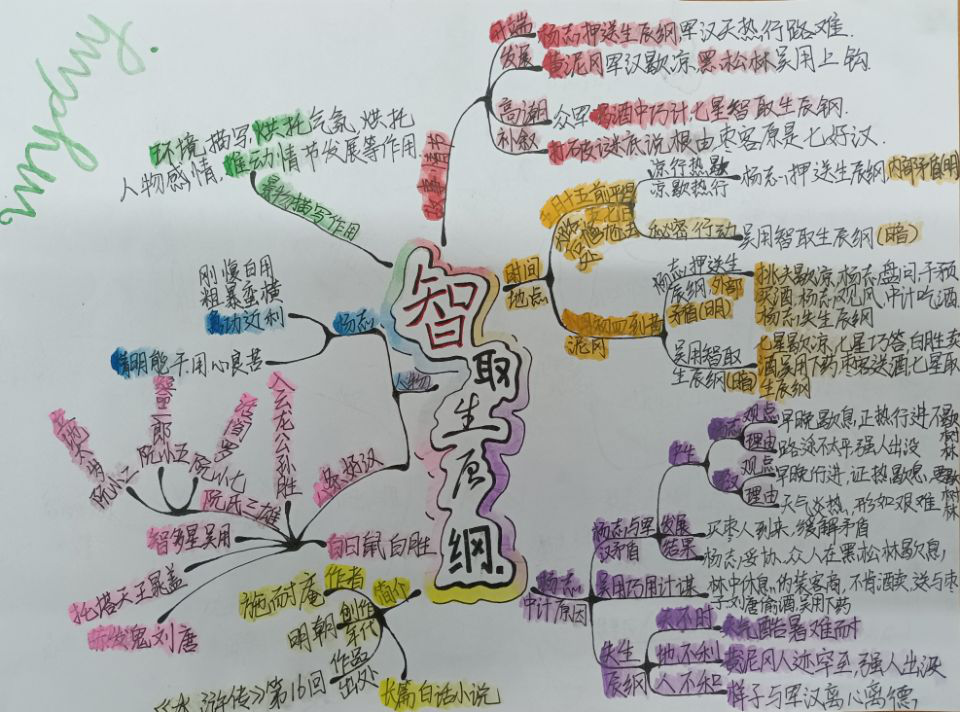 智取生辰纲.
故事情节
开端
杨志押送生辰纲军汉天热行路难.
发展
黄泥冈军汉歇凉,黑松林吴用上钩
高潮
众军 酒中巧计,七星智取生辰钢.
补叙
说根由枣客原是七好汉.
环境描写,烘托气氛,烘托
人物感情,推动情节发展等作用.
景物描写作用
时间
地点
凉行热歇
凉歇热行
杨志押送生辰纲,内部矛盾(明)
秘密行动
吴用智取生辰纲(暗)
泥冈
杨志押送生
辰纲,外部
矛盾(明)
挑夫歇凉,杨志盘问,干预
买酒,杨志见风,中计吃酒
杨志失生辰纲
吴用智取
生辰纲(暗)
七星歇凉,七星巧答,白胜卖
酒吴用下药枣客送酒,七星取
生辰纲
人物
杨志
刚愎自用
粗暴蛮横
急功近利
精明能干,用心良苦
八条好汉
入云龙公孙胜
阮氏三雄
阮小二
阮小五
阮小七
智多星吴用
托塔天王晁盖
赤发鬼刘唐
白日鼠白胜
简介
作者
施耐庵
创作
年代
明朝
作品
出处
《水浒传》第16回
长篇白话小说
杨志
中计原因
杨志与军
汉矛盾
产生
杨志
观点
早晚歇息,正热行进,不歇
树林
理由
路途不太平,强人出没
观点
早晚行进,证热歇息,要歇
树林
理由
天气炎热,形如艰难
发展
买枣人到来,缓解矛盾
结果
杨志妥协,众人在黑松林歇息,
吴用巧用计谋
林中休息,伪装客商,不肯酒卖,送与枣
子刘唐偷酒,吴用下药
失生
辰纲
天不时
天气酷暑难耐
地不利
黄泥冈人迹罕至,强人出没
人不和
样子与军汉离心离德,